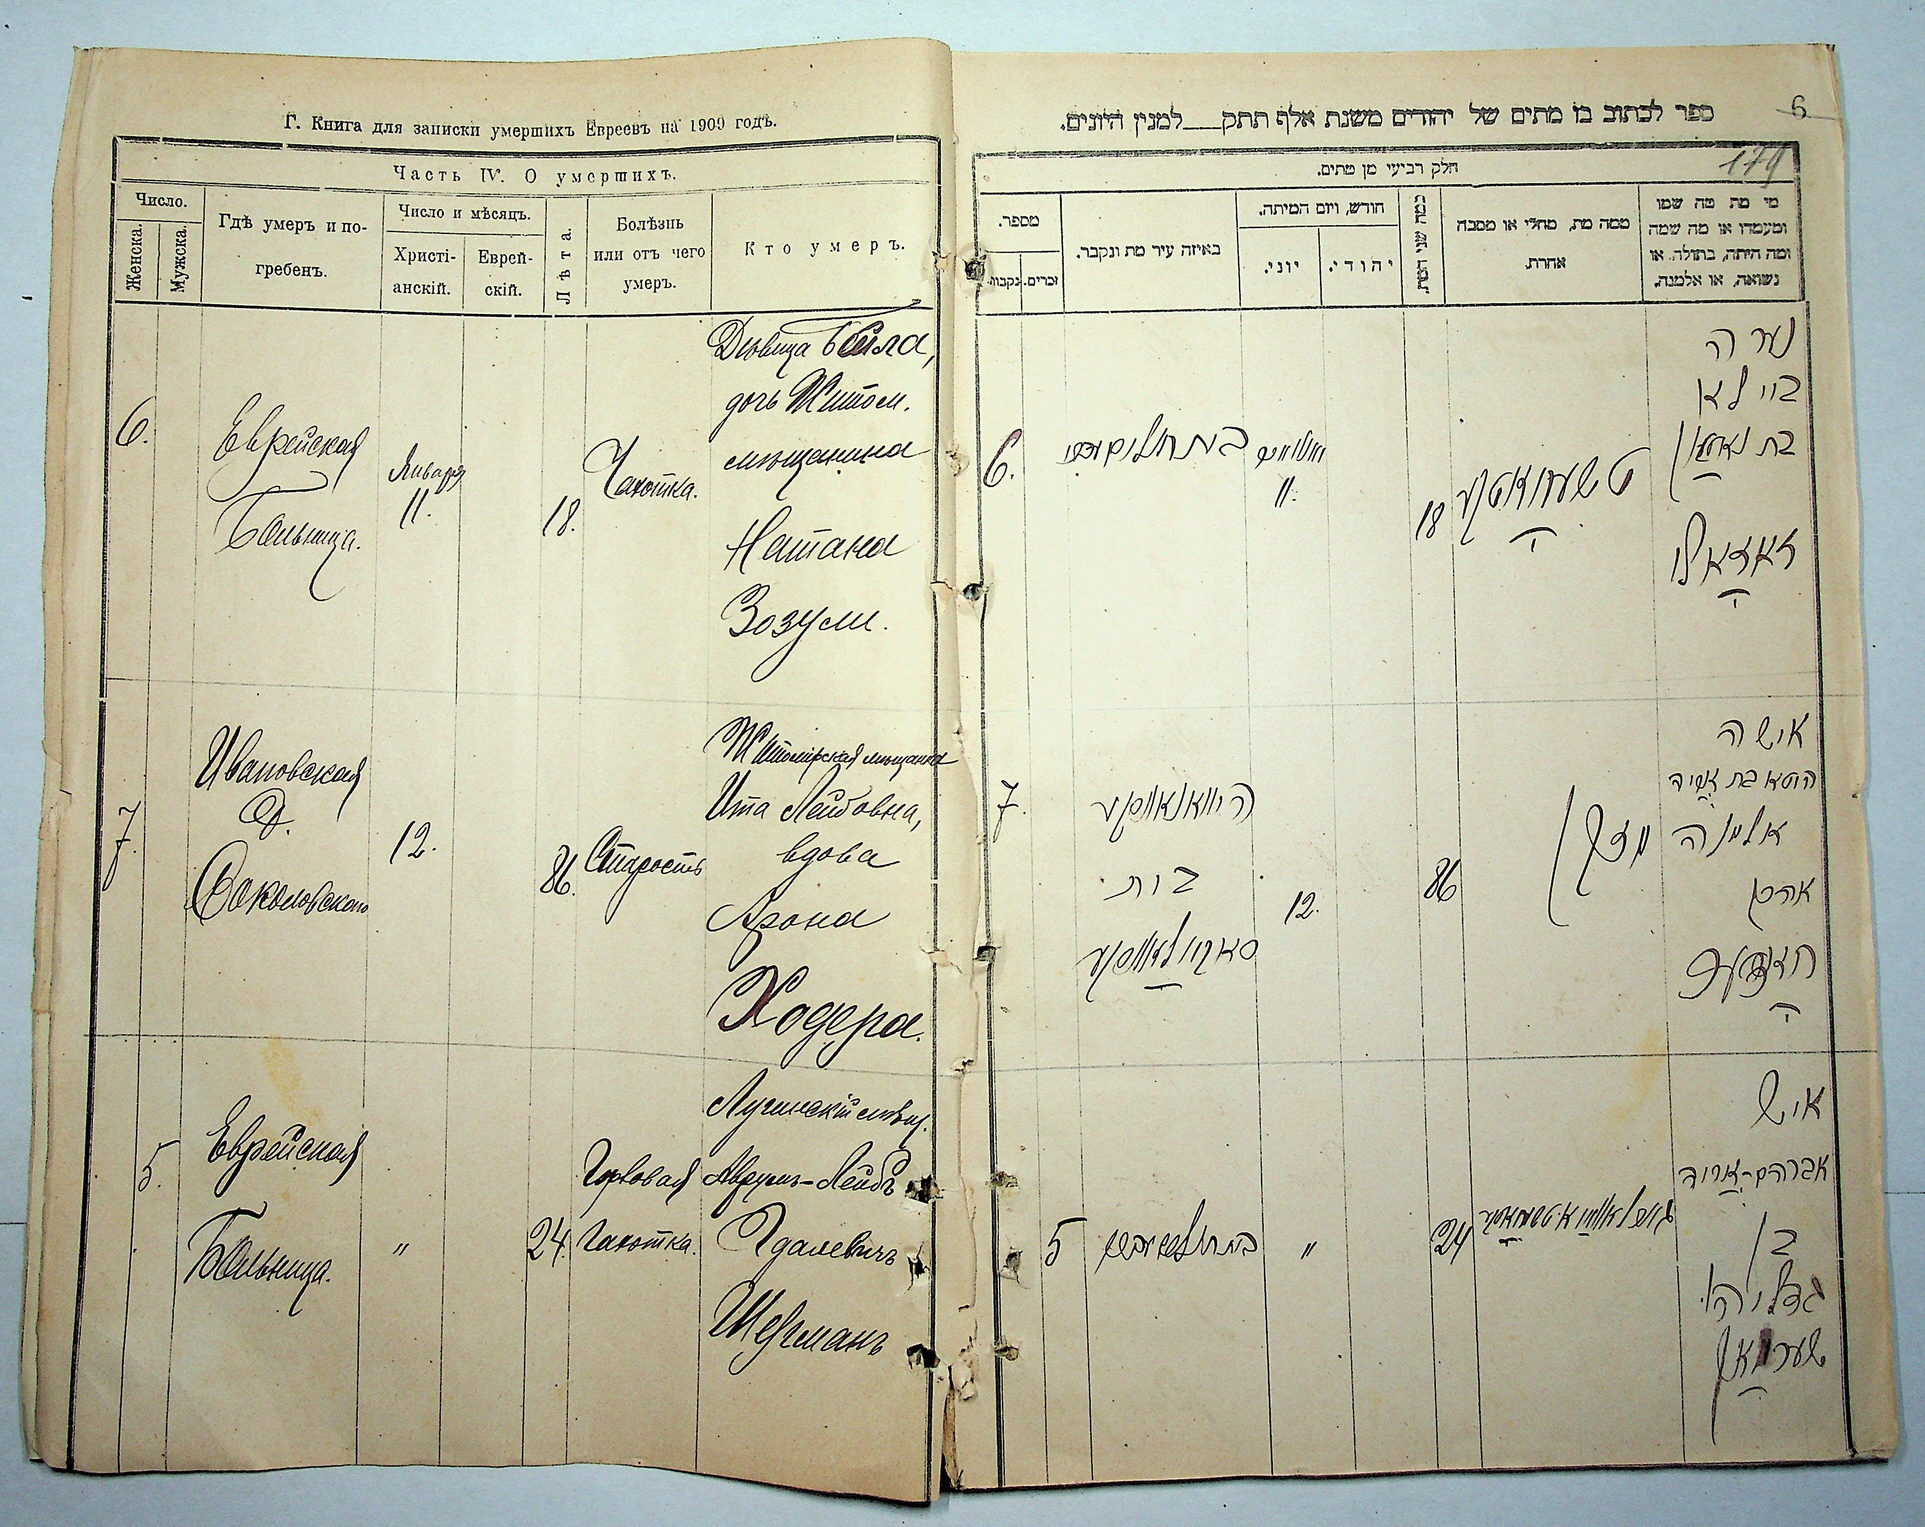 Г. Книга для записки умершихъ Евреевъ на 1909 годъ.
Часть IV. О умершихъ.
Число.
Женска.
Мужска.
Гдѣ умеръ и по-
гребенъ.
Число и мѣсяцъ.
Христі-
анскій.
Еврей-
скій.
Лѣта.
Болѣзнь
или отъ чего
умеръ.
Кто умеръ.
6.
Еврейская
Больница.
Января
11.
18.
Чахотка.
Дѣвица Бейла,
дочь Житом.
мѣщанина
Натана
Зозули.
7.
Ивановская
д.
Соколовского
12.
86.
Старость
Житомірская мѣщанка
Ита Лейбовна,
вдова
Арона
Ходера.
5.
Еврейская
Больница.
"
24.
Горловая
Чахотка.
Лугинскій
Аврумъ-Лейбъ
Гдалевичъ
Шерманъ
6.
179
ספר לכתוב בו מתים של יהודים משנת אלף תתק__למנין היונים.
חלק רביעי מן מתים.
מספר.
נקבות.
זכרים.
באיזה עיר מת ונקבר.
חודש, ויום המיתה.
יוני.
יהודי.
כמה שני המת.
ממה מת, מחלי או מסבה
אחרת.
מי מת מה שמו
ומעמדו או מה שמה
ומה היתה, בתולה או
נשואה, או אלמנה.
6.
11.
18
נערה
ביילא
בת נאטאן
זאזאלי
ה
7.
בית
12.
86
זקן
אישה
אלמנה
אהרן
ה
5
"
24
איש
אברהם-
בן
גדליהו
שערמאן